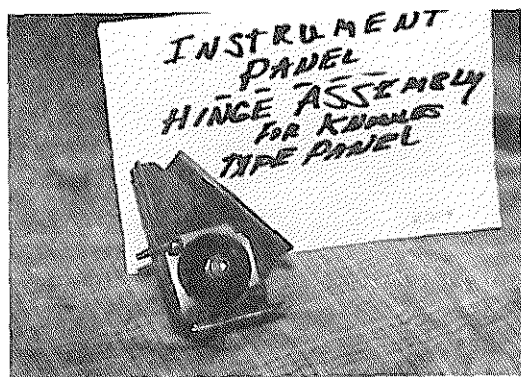 INSTRUMENT
PANEL
HINGE ASSEMBLY
FOR KNOWLES
TYPE PANEL